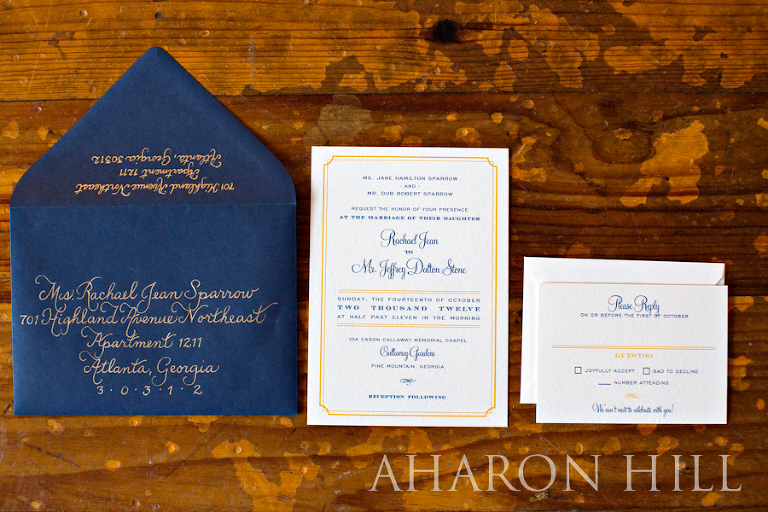 701 Highland Avenue Northeast
Apartment 1211
Atlanta, Georgia 30312
Ms. Rachael Jean Sparrow
701 Highland Avenue Northeast
Apartment 1211
Atlanta, Georgia
3·0·3·1·2
MS. JANE HAMILTON SPARROW
- AND -
MR. DUB ROBERT SPARROW
REQUEST THE HONOR OF YOUR PRESENCE
AT THE MARRIAGE OF THEIR DAUGHTER
Rachael Jean
TO
Mr. Jeffrey Dalton Stone
SUNDAY, THE FOURTEENTH OF OCTOBER
TWO THOUSAND TWELVE
AT HALF PAST ELEVEN IN THE MORNING
IDA CASON CALLAWAY MEMORIAL CHAPEL
Callaway Gardens
PINE MOUNTAIN, GEORGIA
RECEPTION FOLLOWING
Please Reply
ON OR BEFORE THE FIRST OF OCTOBER
GUEST(S)
JOYFULLY ACCEPT SAD TO DECLINE
NUMBER ATTENDING
We can't wait to celebrate with you!
AHARON HILL